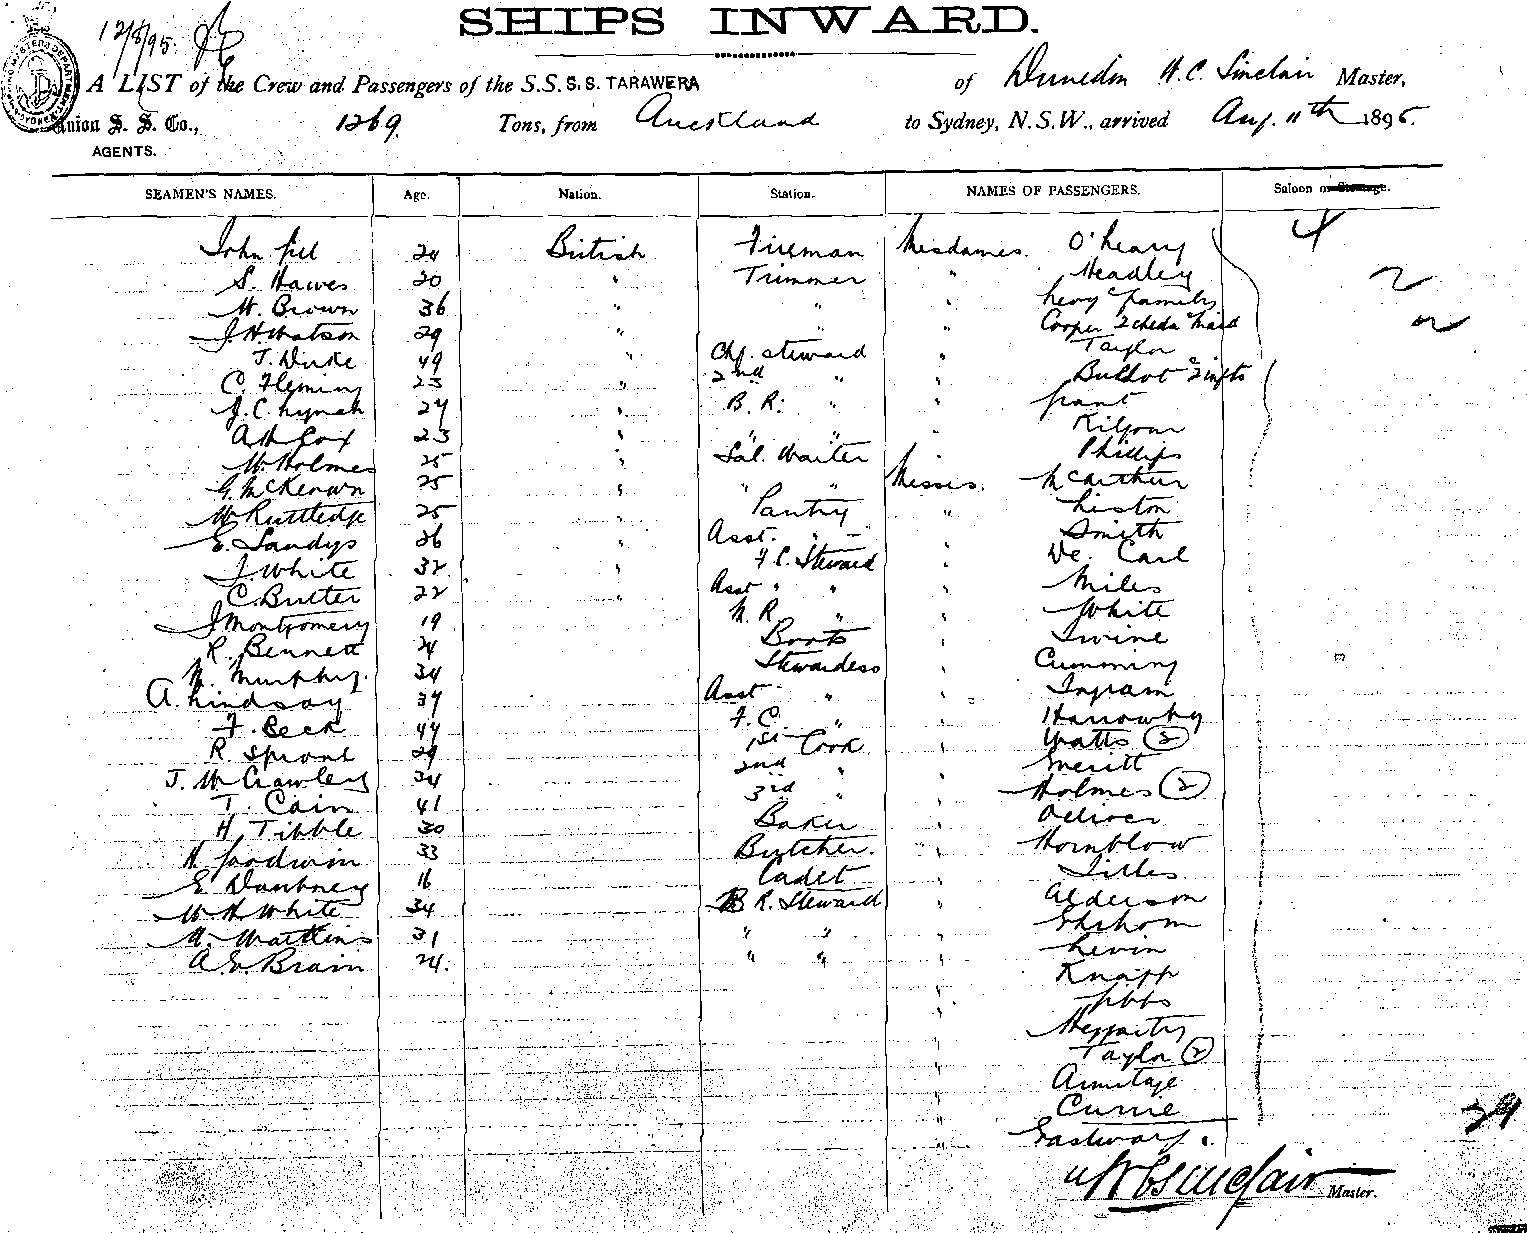 12/8/95
SHIPS INWARD.
A LIST of the Crew and Passengers of the S.S. S.S. TARAWERA of Dunedin H.C. Sinclair Master,
Union S. S. Co., 1269 Tons, from Auckland to Sydney, N.S.W., arrived Aug. 11th 1895.
AGENTS.
SEAMEN'S NAMES. Age. Nation. Station. NAMES OF PASSENGERS. Saloon or Steerage.
John 24 British Fireman Mesdames. O'Leary 4
S. Hawes 20 " Trimmer " Headley 2
W. Brown 36 " " " Levy & family
J.H. Watson 29 " " Cooper 2 childn & maid 2
J. Duke 49 " Chf. steward " Taylor
C. Fleming 23 " 2nd " " Bullot & 2 infts
J.C. Lynch 24 " B. R. " " Grant
A.H. Cox 23 " " " Kilgour
W. Holmes 25 " Sal. Waiter Phillips
G. McKeown 25 " " " Messrs. McArthur
W Ruttledge 25 Pantry " Liston
E. Sandys 26 " Asst. " Smith
J. White 32 " F.C. Steward " De Carl
C. Butter 22 " Asst " " " Miles
J Montgomery 19 M. R " " White
R. Bennett 24 Boots " Irvine
M. Murphy. 34 Stewardess " Cumming
A. Lindsay 37 Asst " " Ingram
F. Beck 44 F. C. " " Harrowby
R. Sproul 29 1st Cook " Watts (2)
J. W Crawley 24 2nd " " Merritt
T. Cain 41 3rd " " Holmes (2)
H. Tibble 30 Baker " Oliver
H Goodwin 33 Butcher. " Hornblow
E Daubney 16 Cadet " Tilles
W. H White 34 B R. Steward " Alderson
W. Watkins 31 " " " Ekshom
A.E Brain 24. " " " Levin
" Knapp
" Gibbs
" Heggarty
" Taylor (2)
" Armitage
" Currie
" Eastway 29
H C Sinclair Master.